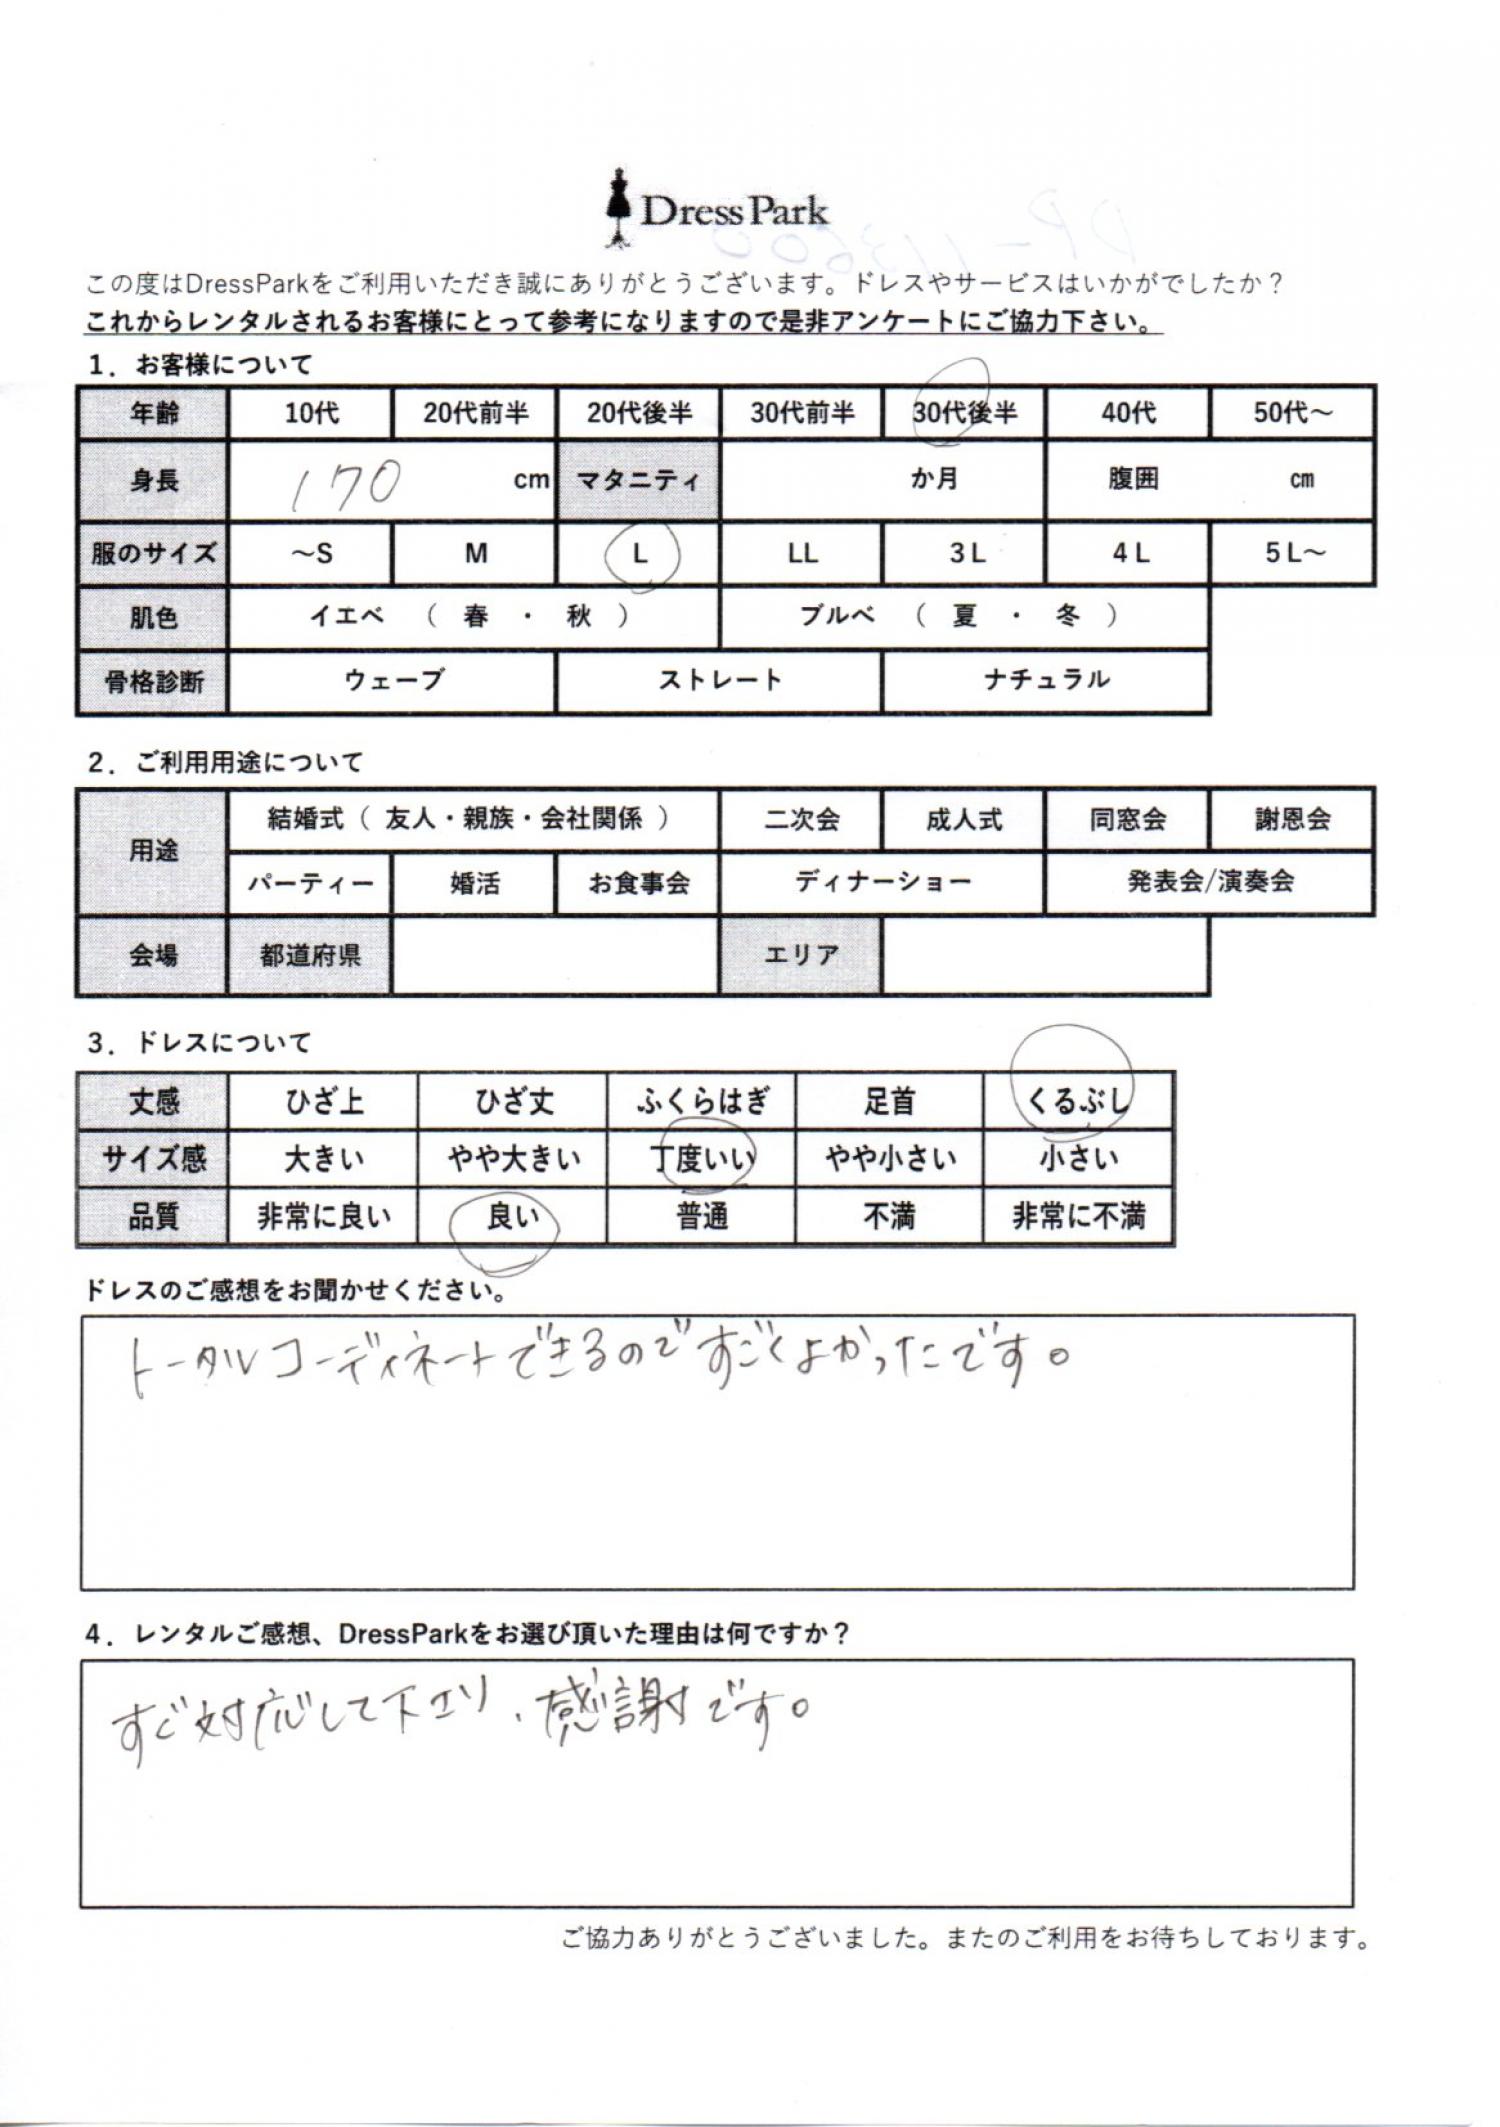 Dress Park
この度はDressParkをご利用いただき誠にありがとうございます。ドレスやサービスはいかがでしたか？
これからレンタルされるお客様にとって参考になりますので是非アンケートにご協力下さい。
1．お客様について
年齢 10代 20代前半 20代後半 30代前半 30代後半 40代 50代～
身長 170 cm マタニティ か月 腹囲 ㎝
服のサイズ ～S M L LL 3L 4L 5L～
肌色 イエベ （ 春 ・ 秋 ） ブルベ （ 夏 ・ 冬 ）
骨格診断 ウェーブ ストレート ナチュラル
2．ご利用用途について
用途 結婚式（ 友人・親族・会社関係 ） 二次会 成人式 同窓会 謝恩会
パーティー 婚活 お食事会 ディナーショー 発表会/演奏会
会場 都道府県 エリア
3．ドレスについて
丈感 ひざ上 ひざ丈 ふくらはぎ 足首 くるぶし
サイズ感 大きい やや大きい 丁度いい やや小さい 小さい
品質 非常に良い 良い 普通 不満 非常に不満
ドレスのご感想をお聞かせください。
トータルコーディネートできるのですごくよかったです。
4．レンタルご感想、DressParkをお選び頂いた理由は何ですか？
すぐ対応して下さり、感謝です。
ご協力ありがとうございました。またのご利用をお待ちしております。